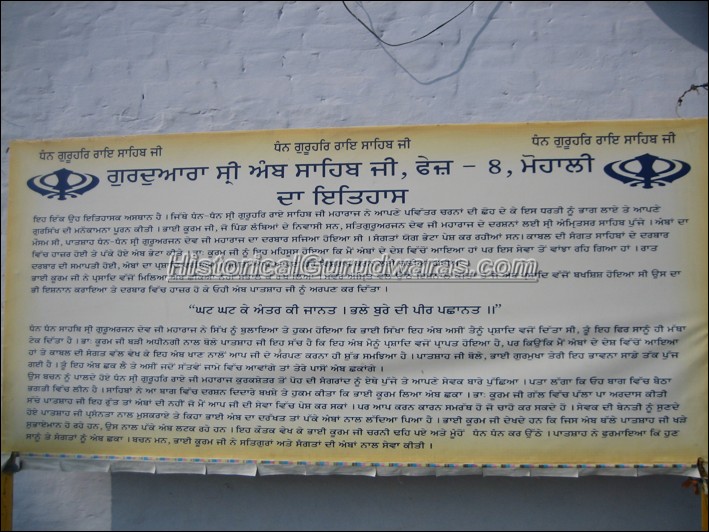 ਧੰਨ ਗੁਰੂਹਰਿ ਰਾਇ ਸਾਹਿਬ ਜੀ ਧੰਨ ਗੁਰੂਹਰਿ ਰਾਇ ਸਾਹਿਬ ਜੀ ਧੰਨ ਗੁਰੂਹਰਿ ਰਾਇ ਸਾਹਿਬ ਜੀ
ਗੁਰਦੁਆਰਾ ਸ੍ਰੀ ਅੰਬ ਸਾਹਿਬ ਜੀ, ਫੇਜ਼ - ੪, ਮੋਹਾਲੀ
ਦਾ ਇਤਿਹਾਸ
ਇਹ ਇੱਕ ਉਹ ਇਤਿਹਾਸਕ ਅਸਥਾਨ ਹੈ। ਜਿੱਥੇ ਧੰਨ-ਧੰਨ ਸ੍ਰੀ ਗੁਰੂਹਰਿ ਰਾਏ ਸਾਹਿਬ ਜੀ ਮਹਾਰਾਜ ਨੇ ਆਪਣੇ ਪਵਿੱਤਰ ਚਰਨਾਂ ਦੀ ਛੋਹ ਦੇ ਕੇ ਇਸ ਧਰਤੀ ਨੂੰ ਭਾਗ ਲਾਏ ਤੇ ਆਪਣੇ
ਗੁਰਸਿੱਖ ਦੀ ਮਨੋਕਾਮਨਾ ਪੂਰਨ ਕੀਤੀ। ਭਾਈ ਕੂਰਮ ਜੀ, ਜੋ ਪਿੰਡ ਲੰਬਿਆਂ ਦੇ ਨਿਵਾਸੀ ਸਨ, ਸਤਿਗੁਰੂਅਰਜਨ ਦੇਵ ਜੀ ਮਹਾਰਾਜ ਦੇ ਦਰਸ਼ਨਾਂ ਲਈ ਸ੍ਰੀ ਅੰਮ੍ਰਿਤਸਰ ਸਾਹਿਬ ਪੁੱਜੇ। ਅੰਬਾਂ ਦਾ
ਮੌਸਮ ਸੀ, ਪਾਤਸ਼ਾਹ ਧੰਨ-ਧੰਨ ਸ੍ਰੀ ਗੁਰੂਅਰਜਨ ਦੇਵ ਜੀ ਮਹਾਰਾਜ ਦਾ ਦਰਬਾਰ ਸਜਿਆ ਹੋਇਆ ਸੀ। ਸੰਗਤਾਂ ਯੋਗ ਭੇਟਾ ਪੇਸ਼ ਕਰ ਰਹੀਆਂ ਸਨ। ਕਾਬਲ ਦੀ ਸੰਗਤ ਸਾਹਿਬਾਂ ਦੇ ਦਰਬਾਰ
ਵਿੱਚ ਹਾਜ਼ਰ ਹੋਈ ਤੇ ਪੱਕੇ ਹੋਏ ਅੰਬ ਭੇਟਾ ਕੀਤੇ। ਭਾ: ਕੂਰਮ ਜੀ ਨੂੰ ਇਹ ਮਹਿਸੂਸ ਹੋਇਆ ਕਿ ਮੈਂ ਅੰਬਾਂ ਦੇ ਦੇਸ਼ ਵਿੱਚੋਂ ਆਇਆ ਹਾਂ ਪਰ ਇਸ ਸੇਵਾ ਤੋਂ ਵਾਂਝਾ ਰਹਿ ਗਿਆ ਹਾਂ। ਰਾਤ
ਦਰਬਾਰ ਦੀ ਸਮਾਪਤੀ ਹੋਈ, ਅੰਬਾਂ ਦਾ ਪ੍ਰਸ਼ਾਦਿ
HistoricalGurudwaras.com
ਭਾਈ ਕੂਰਮ ਜੀ ਨੇ ਆਪਣੇ ਪ੍ਰਸ਼ਾਦਿ ਵਜੋਂ ਮਿਲਿਆ ਪ੍ਰਸ਼ਾਦਿ ਵਜੋਂ ਬਖਸ਼ਿਸ਼ ਹੋਇਆ ਸੀ ਉਸ ਦਾ
ਭੀ ਇਸ਼ਨਾਨ ਕਰਾਇਆ ਤੇ ਦਰਬਾਰ ਵਿੱਚ ਹਾਜ਼ਰ ਹੋ ਕੇ ਓਹੀ ਅੰਬ ਪਾਤਸ਼ਾਹ ਜੀ ਨੂੰ ਅਰਪਣ ਕਰ ਦਿੱਤਾ।
"ਘਟ ਘਟ ਕੇ ਅੰਤਰ ਕੀ ਜਾਨਤ। ਭਲੇ ਬੁਰੇ ਦੀ ਪੀਰ ਪਛਾਨਤ।।"
ਧੰਨ ਧੰਨ ਸਾਹਬਿ ਸ੍ਰੀ ਗੁਰੂਅਰਜਨ ਦੇਵ ਜੀ ਮਹਾਰਾਜ ਨੇ ਸਿੱਖ ਨੂੰ ਬੁਲਾਇਆ ਤੇ ਹੁਕਮ ਹੋਇਆ ਕਿ ਭਾਈ ਸਿੱਖਾ ਇਹ ਅੰਬ ਅਸੀਂ ਤੈਨੂੰ ਪ੍ਰਸ਼ਾਦਿ ਵਜੋਂ ਦਿੱਤਾ ਸੀ, ਤੂੰ ਇਹ ਫਿਰ ਸਾਨੂੰ ਹੀ ਮੱਥਾ
ਟੇਕ ਦਿੱਤਾ ਹੈ। ਭਾ: ਕੂਰਮ ਜੀ ਬੜੀ ਅਧੀਨਗੀ ਨਾਲ ਬੋਲੇ ਪਾਤਸ਼ਾਹ ਜੀ ਇਹ ਸੱਚ ਹੈ ਕਿ ਇਹ ਅੰਬ ਮੈਨੂੰ ਪ੍ਰਸ਼ਾਦਿ ਵਜੋਂ ਪ੍ਰਾਪਤ ਹੋਇਆ ਹੈ, ਪਰ ਕਿਉਂਕਿ ਮੈਂ ਅੰਬਾਂ ਦੇ ਦੇਸ਼ ਵਿੱਚੋਂ ਆਇਆ
ਹਾਂ ਤੇ ਕਾਬਲ ਦੀ ਸੰਗਤ ਵੱਲ ਵੇਖ ਕੇ ਇਹ ਅੰਬ ਖਾਣ ਨਾਲੋਂ ਆਪ ਜੀ ਦੇ ਅਰਪਣ ਕਰਨਾ ਹੀ ਸ਼ੁੱਭ ਸਮਝਿਆ ਹੈ। ਪਾਤਸ਼ਾਹ ਬੋਲੇ, ਭਾਈ ਗੁਰਮੁਖਾ ਤੇਰੀ ਇਹ ਭਾਵਨਾ ਸਾਡੇ ਤੱਕ ਪੁੱਜ
ਗਈ ਹੈ। ਤੂੰ ਇਹ ਅੰਬ ਛਕ ਲੈ ਤੇ ਅਸੀਂ ਜਦੋਂ ਸੱਤਵੇਂ ਜਾਮੇ ਵਿੱਚ ਆਵਾਂਗੇ ਤਾਂ ਤੇਰੇ ਪਾਸੋਂ ਅੰਬ ਛਕਾਂਗੇ।
ਉਸ ਬਚਨ ਨੂੰ ਪਾਲਦੇ ਹੋਏ ਧੰਨ ਸ੍ਰੀ ਗੁਰੂਹਰਿ ਰਾਏ ਜੀ ਮਹਾਰਾਜ ਕੁਰਕਸ਼ੇਤਰ ਤੋਂ ਪੋਹ ਦੀ ਸੰਗਰਾਂਦ ਨੂੰ ਇੱਥੇ ਪੁੱਜੇ ਤੇ ਆਪਣੇ ਸੇਵਕ ਬਾਰੇ ਪੁੱਛਿਆ। ਪਤਾ ਲੱਗਾ ਕਿ ਓਹ ਬਾਗ ਵਿੱਚ ਬੈਠਾ
ਭਗਤੀ ਵਿੱਚ ਲੀਨ ਹੈ। ਸਾਹਿਬਾਂ ਨੇ ਆ ਬਾਗ ਵਿੱਚ ਦਰਸ਼ਨ ਦਿਦਾਰੇ ਬਖਸ਼ੇ ਤੇ ਹੁਕਮ ਕੀਤਾ ਕਿ ਭਾਈ ਕੂਰਮ ਲਿਆ ਅੰਬ ਛਕਾ। ਭਾ: ਕੂਰਮ ਜੀ ਗੱਲ ਵਿੱਚ ਪੱਲਾ ਪਾ ਅਰਦਾਸ ਕੀਤੀ
ਸੱਚੇ ਪਾਤਸ਼ਾਹ ਜੀ ਇਹ ਰੁੱਤ ਤਾਂ ਅੰਬਾਂ ਦੀ ਨਹੀਂ ਜੋ ਮੈਂ ਆਪ ਜੀ ਦੀ ਸੇਵਾ ਵਿੱਚ ਪੇਸ਼ ਕਰ ਸਕਾਂ। ਪਰ ਆਪ ਕਰਨ ਕਾਰਨ ਸਮਰੱਥ ਹੋ ਜੋ ਚਾਹੋ ਕਰ ਸਕਦੇ ਹੋ। ਸੇਵਕ ਦੀ ਬੇਨਤੀ ਨੂੰ ਸੁਣਦੇ
ਹੋਏ ਪਾਤਸ਼ਾਹ ਜੀ ਪ੍ਰਸੰਨਤਾ ਨਾਲ ਮੁਸਕਰਾਏ ਤੇ ਕਿਹਾ ਭਾਈ ਅੰਬ ਦਾ ਦਰੱਖਤ ਤਾਂ ਪੱਕੇ ਅੰਬਾਂ ਨਾਲ ਲੱਦਿਆ ਪਿਆ ਹੈ। ਭਾਈ ਕੂਰਮ ਜੀ ਦੇਖਦੇ ਹਨ ਕਿ ਜਿਸ ਅੰਬ ਥੱਲੇ ਪਾਤਸ਼ਾਹ ਜੀ ਖੜੇ
ਸੁਭਾਇਮਾਨ ਹੋ ਰਹੇ ਹਨ, ਉਸ ਨਾਲ ਪੱਕੇ ਅੰਬ ਲਟਕ ਰਹੇ ਹਨ। ਇਹ ਕੌਤਕ ਵੇਖ ਕੇ ਭਾਈ ਕੂਰਮ ਜੀ ਚਰਨੀ ਢਹਿ ਪਏ ਅਤੇ ਮੂੰਹੋਂ ਧੰਨ ਧੰਨ ਕਰ ਉੱਠੇ। ਪਾਤਸ਼ਾਹ ਨੇ ਫੁਰਮਾਇਆ ਕਿ ਹੁਣ
ਸਾਨੂੰ ਤੇ ਸੰਗਤਾਂ ਨੂੰ ਅੰਬ ਛਕਾ। ਬਚਨ ਮਨ, ਭਾਈ ਕੂਰਮ ਜੀ ਨੇ ਸਤਿਗੁਰਾਂ ਅਤੇ ਸੰਗਤਾਂ ਦੀ ਅੰਬਾਂ ਨਾਲ ਸੇਵਾ ਕੀਤੀ।